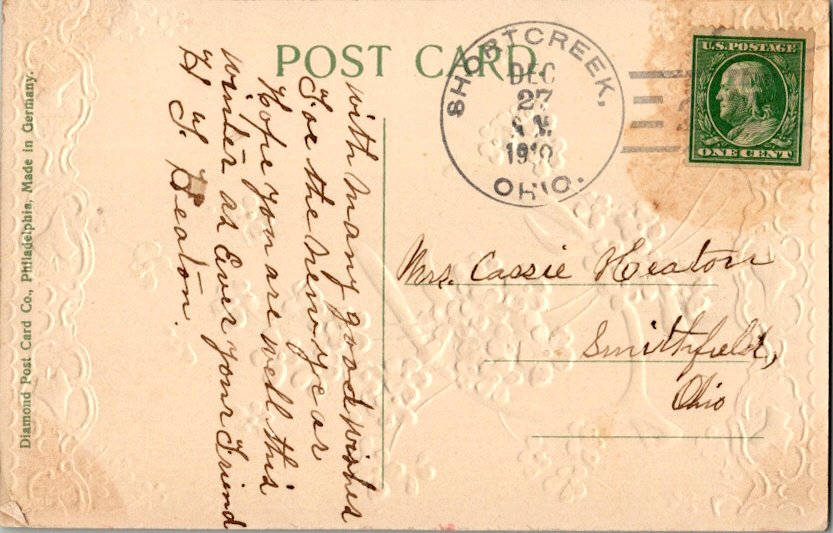 POST CARD
SHORTCREEK,
DEC
27
A.M.
1910
OHIO.
U.S. POSTAGE
ONE CENT
with many good wishes
Foe the new year
Hope you are well this
winter as Ever your Friend
H Heaton.
Mrs. Cassie Heaton
Smithfield,
Ohio
Diamond Post Card Co., Philadelphia, Made in Germany.